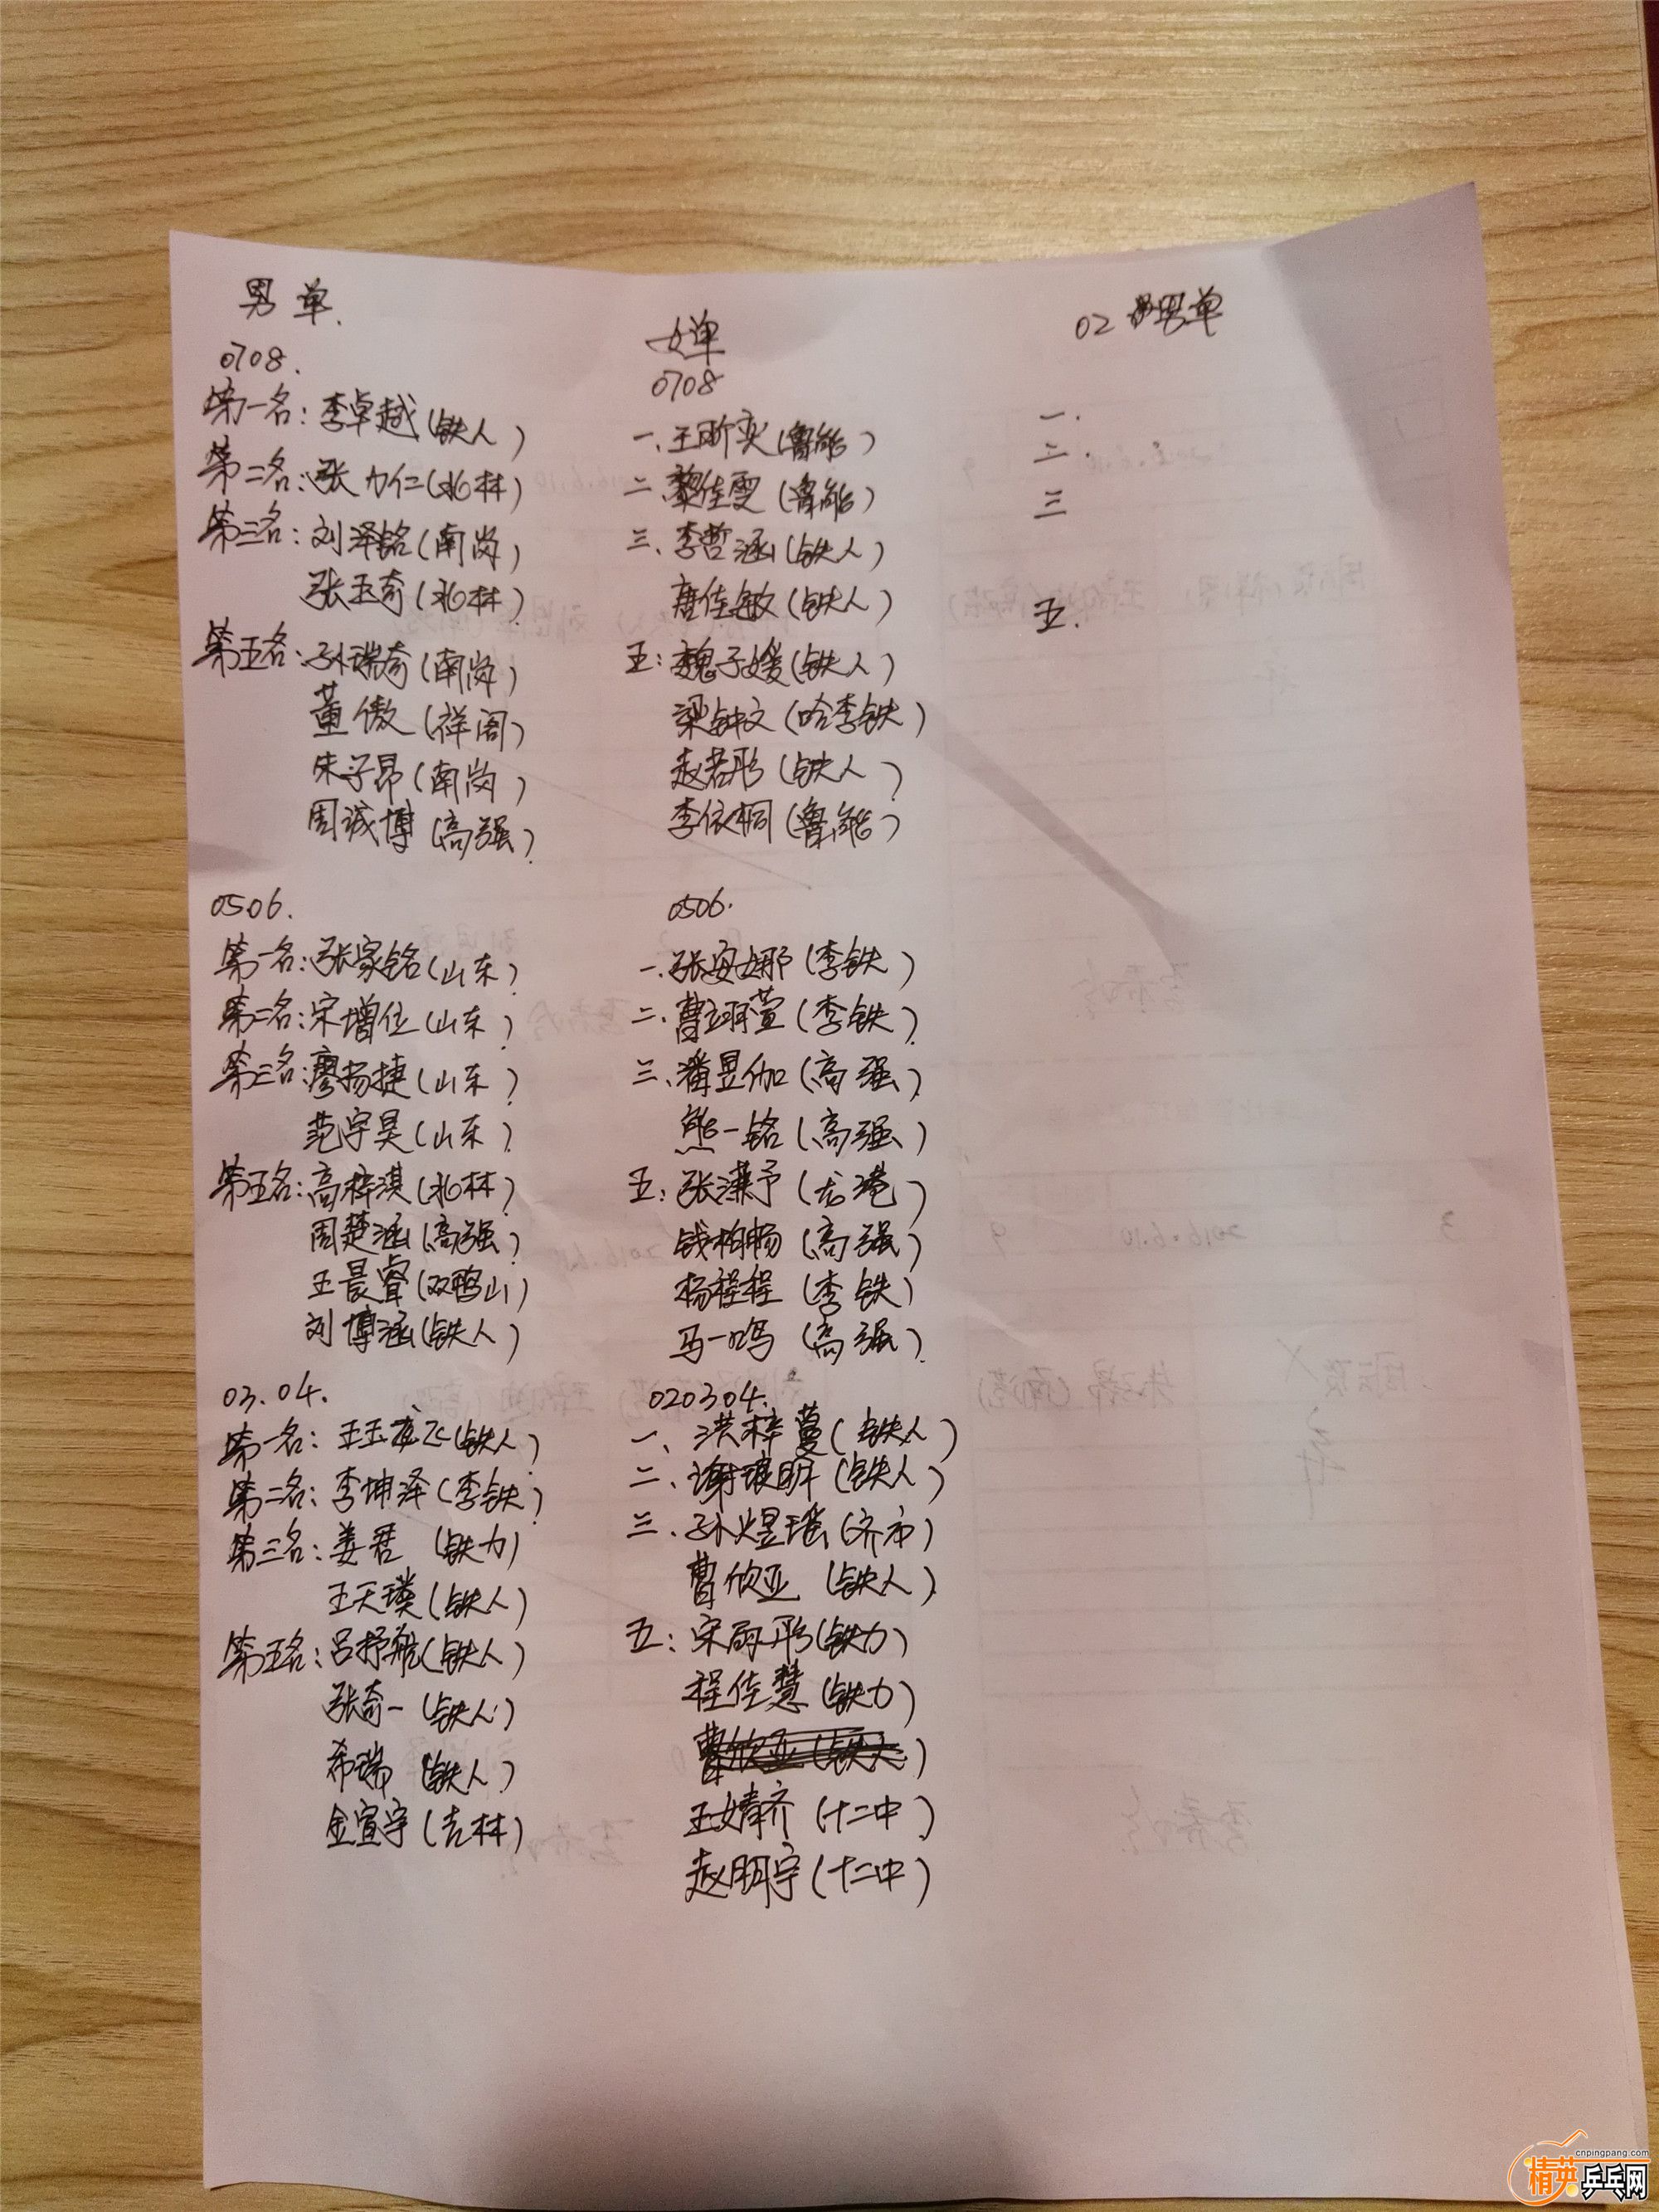 男单.
0708.
第一名:李卓越(铁人)
第二名:张力仁(北林)
第三名:刘泽铭(南岗)
张玉奇(北林)
第五名:孙瑞奇(南岗)
董傲(祥阁)
朱子昂(南岗)
周诚博(高强)
0506.
第一名:张家铭(山东)
第二名:宋增位(山东)
第三名:廖扬捷(山东)
范宇昊(山东)
第五名:高梓淇(北林)
周楚涵(高强)
王晨睿(双鸭山)
刘博涵(铁人)
03.04.
第一名:王玉龙飞(铁人)
第二名:李坤泽(李铁)
第三名:姜君(铁力)
王天璞(铁人)
第五名:吕抒航(铁人)
张奇一(铁人)
希瑞(铁人)
金宣宇(吉林)
女单
0708
一、王昕奕(鲁能)
二、黎佳雯(鲁能)
三、李哲涵(铁人)
唐佳敏(铁人)
五:魏子媛(铁人)
梁钟文(哈李铁)
赵若彤(铁人)
李依桐(鲁能)
0506.
一、张安娜(李铁)
二、曹翊萱(李铁)
三、潘昱伽(高强)
熊一铭(高强)
五:张潇予(龙港)
钱柏畅(高强)
杨程程(李铁)
马一鸣(高强)
020304.
一、洪梓蔓(铁人)
二、谢琅昕(铁人)
三、孙煜瑶(齐市)
曹欣亚(铁人)
五:宋雨彤(铁力)
程佳慧(铁力)
曹欣亚(铁人)
王婧齐(十二中)
赵玥宇(十二中)
02男单
一.
二.
三
五.
cnpingpang.com
精英乒乓网